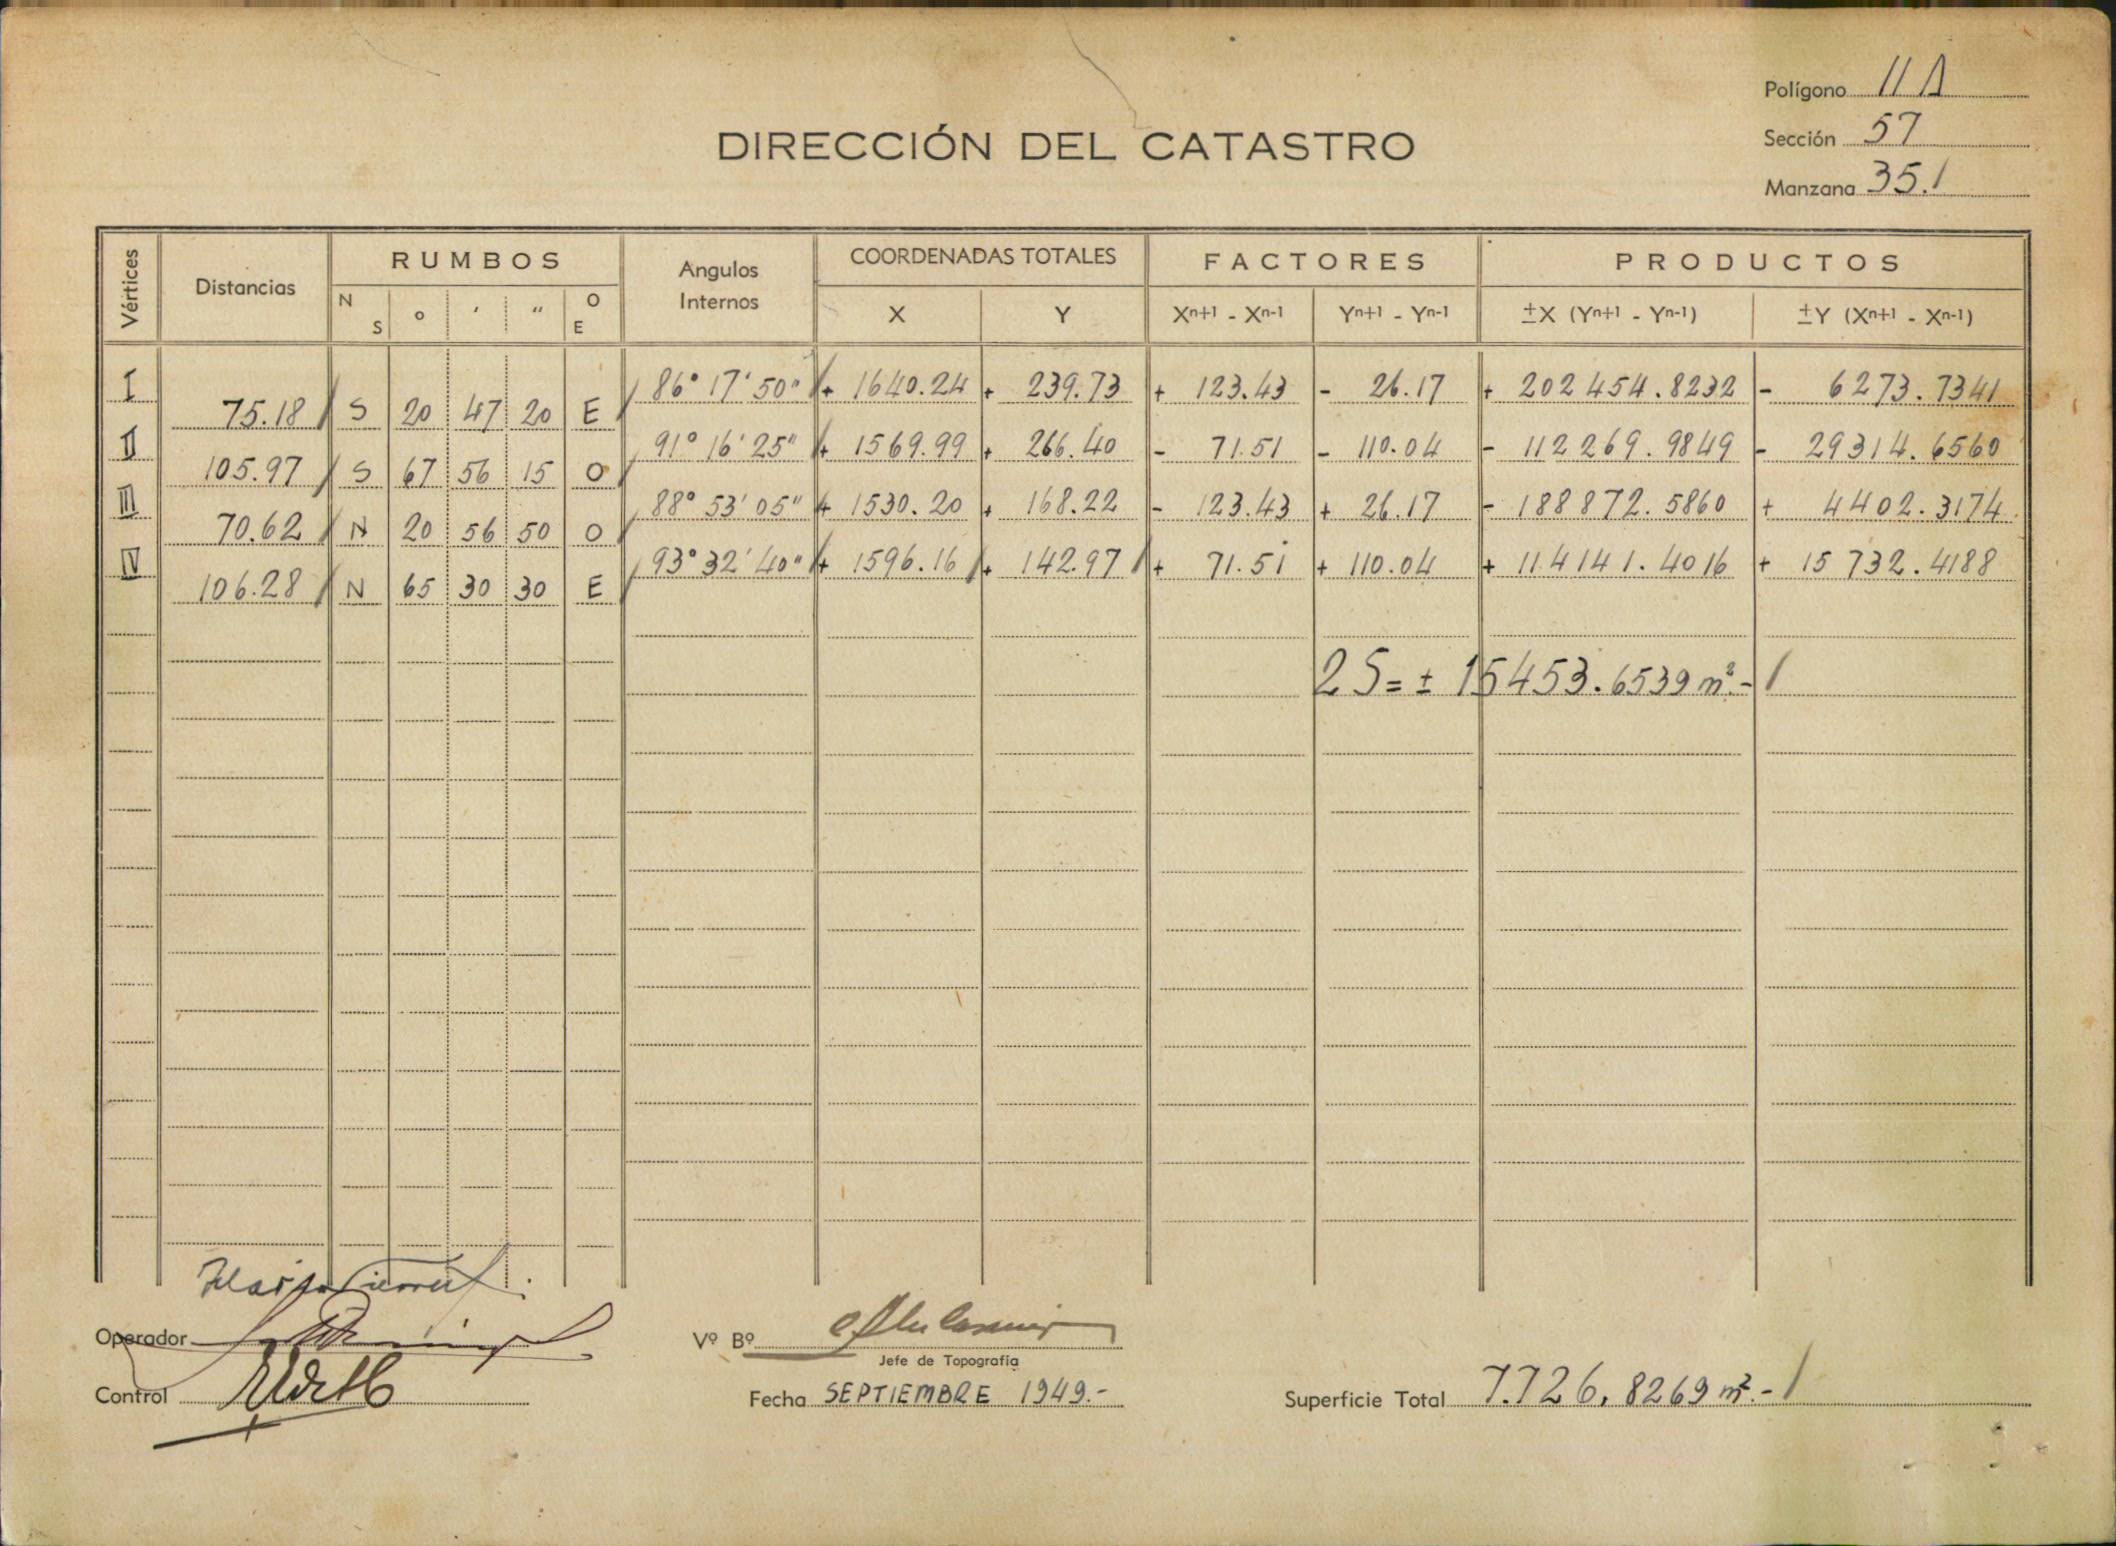 Polígono 11 A
DIRECCIÓN DEL CATASTRO
Sección 57
Manzana 35.1
Vértices Distancias RUMBOS Angulos Internos COORDENADAS TOTALES FACTORES PRODUCTOS
N S ° ' " O E X Y Xn+1 - Xn-1 Yn+1 - Yn-1 ±X (Yn+1 - Yn-1) ±Y (Xn+1 - Xn-1)
I 86° 17' 50" + 1640.24 + 239.73 + 123.43 - 26.17 + 202454.8232 - 6273.7341
75.18 S 20 47 20 E
II 91° 16' 25" + 1569.99 + 266.40 - 71.51 - 110.04 - 112269.9849 - 29314.6560
105.97 S 67 56 15 O
III 88° 53' 05" + 1530.20 + 168.22 - 123.43 + 26.17 - 188872.5860 + 4402.3174
70.62 N 20 56 50 O
IV 93° 32' 40" + 1596.16 + 142.97 + 71.51 + 110.04 + 114141.4016 + 15732.4188
106.28 N 65 30 30 E
2S = ± 15453.6539 m².-
Operador
Vº Bº
Jefe de Topografía
Control
Fecha SEPTIEMBRE 1949.-
Superficie Total 7.726,8269 m².-